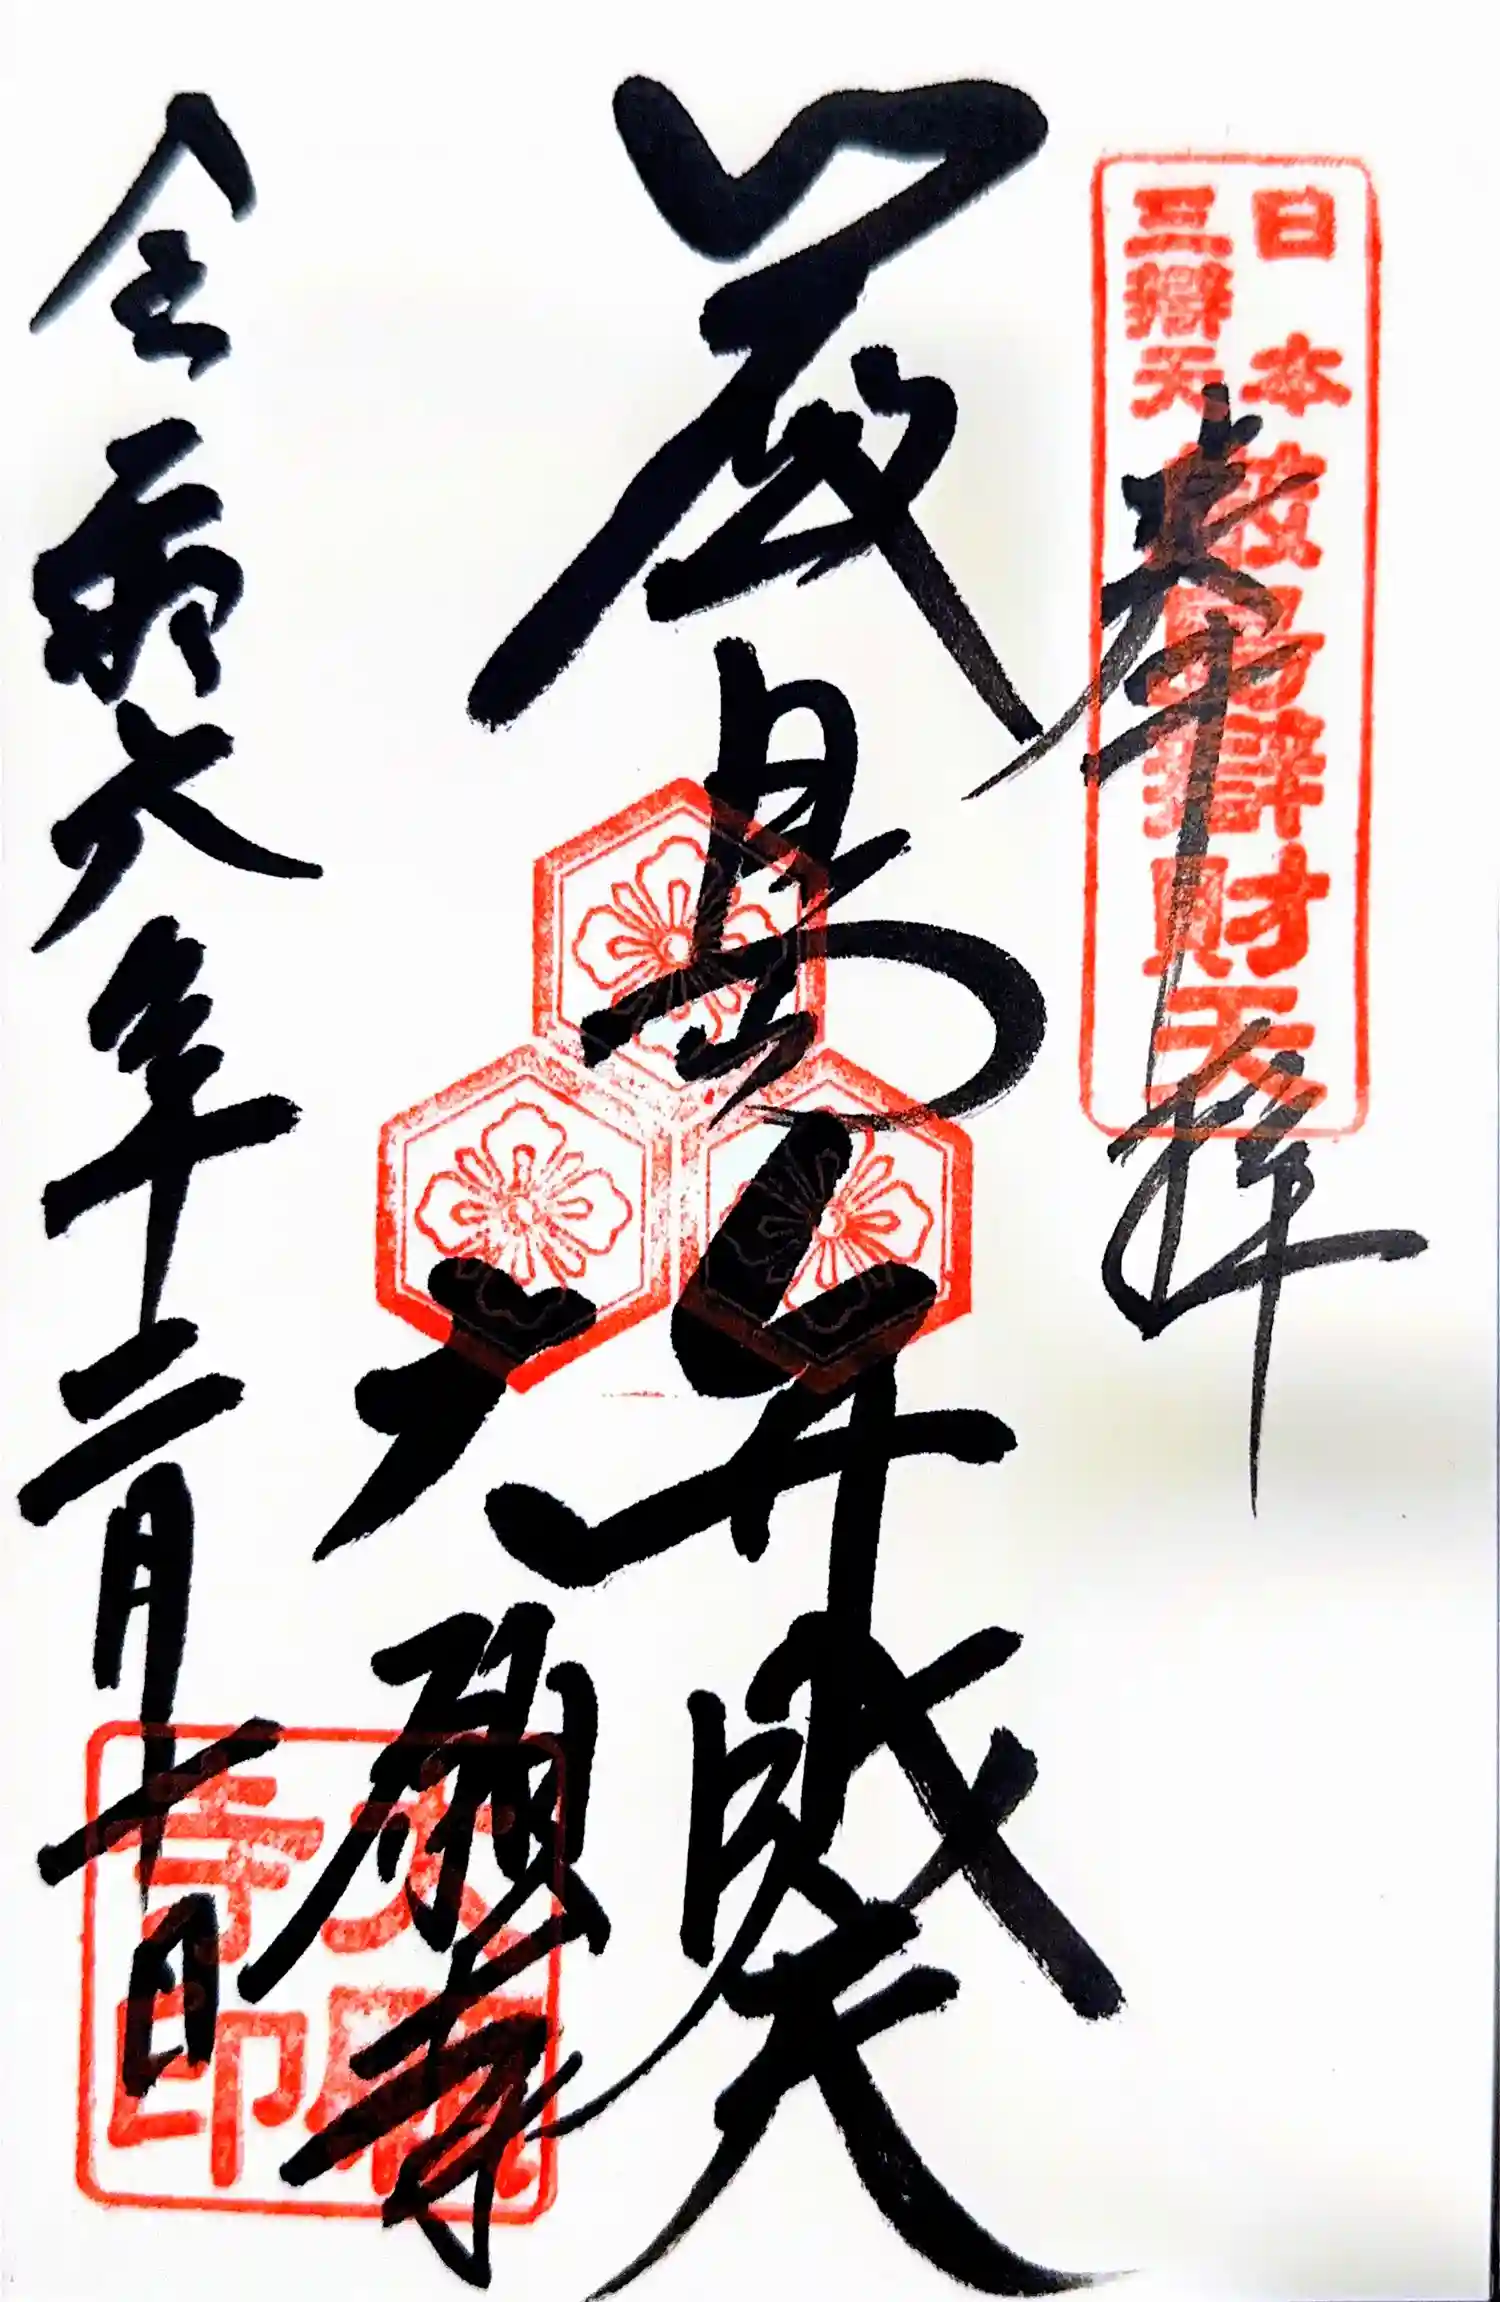 日本
三辯天
厳島辯財天
奉拝
厳島弁財天
大願寺
大願寺印
令和六年十二月十日